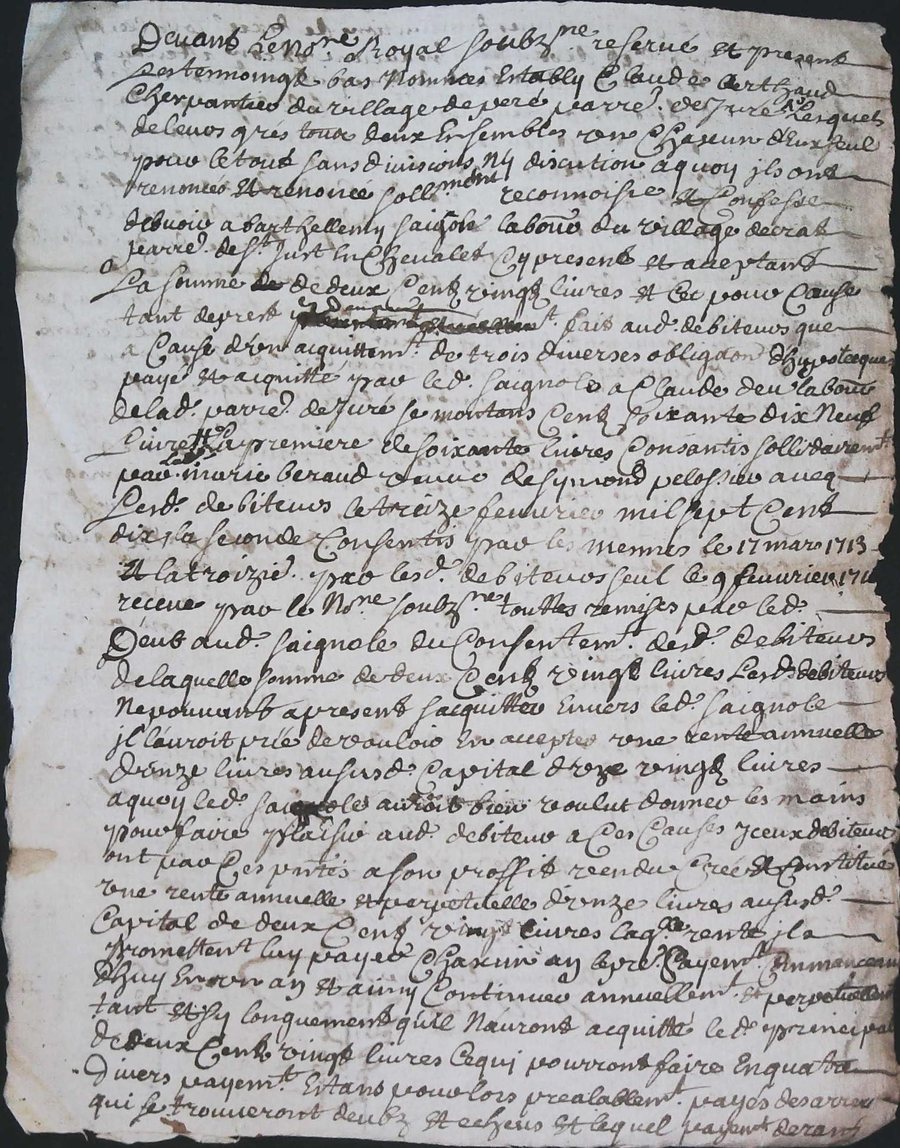 Devant le No.re Royal soubz.ne reservé et present
Les temoingt bas Nommes Estably Claude Berthaud
Cherpantier du village de peré parre. de Juré Lesquels
de leurs grés tous deux Ensembles un Chacun d'Eux seul
pour le tout sans divisions Ny discution a quoy jls ont
renoncés et renonce sollemment reconnoisre et Confesse
debvoir a barthellemy saignole labou.r du village de crat
parre. de St. Just En Chevalet Cy present et aceptant
La somme de deux Centz vingt livres Et Cet pour Cause
tant de prest fait aud. debiteurs que
a Cause d'un acquittem.t de trois diverses obliga.on d'hypotecques
payé et acquitté par led. saignole a Claude deu labou.r
de lad. parre. de Juré se montans Centz soixante dix Neufz
Livres La premiere de soixante livres Consantis sollidairem.t
par marie beraud veuve de symond pelossier avecq
Lesd. debiteurs le treize fevvrier mil sept Cent
dix, la seconde Consentis par les memes le 17 mar 1713
Et la troizie. par lesd. debiteurs seul le 9 fevvrier
receue par le No.re soubz.ne touttes remises par led.
Deut aud. saignole du Consentem.t desd. debiteurs
de laquelle somme de deux Centz vingt livres Lesd. debiteurs
Ne pouvant a present s'acquitter Envers led. saignole
jl l'auroit prié de vouloir En accepter une rente annuelle
d'onze livres au susd. Capital d'onze vingtz livres
a quoy led. saignole auroit bien voulut donner les mains
pour faire plaisir aud. debiteur a Ces Causes jceux debiteurs
ont par Ces pntés a son proffit vendu Créé et Constitué
une rente annuelle et perpetuelle d'onze livres au susd.
Capital de deux Centz vingt livres laq.lle rente jls
promettent luy payer Chacun an le pre. Payem.t Commanceant
d'huy En un an et ainsy Continuer annuellem.t et perpetuellem.t
tant et sy longuement qu'il N'auront acquitté led. principal
de deux Centz vingt livres Ce qui pourront faire En quatre
divers payem.t Estans pour lors prealablem.t payés des arrer
qui se trouveront deubz et echeus et lequel payem.t